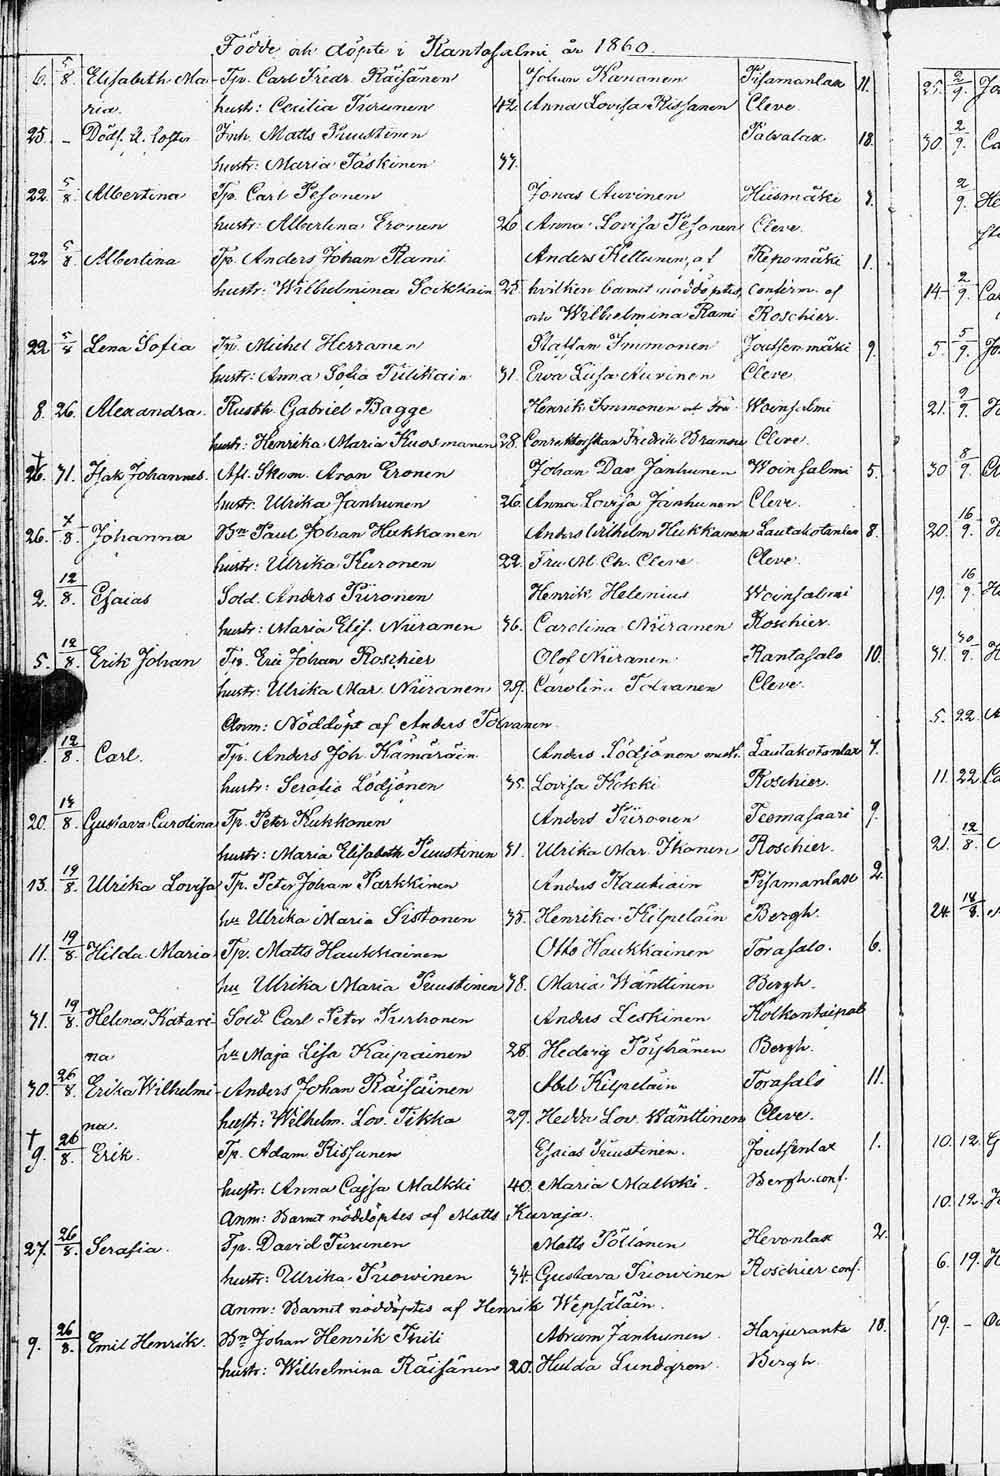 Födde och döpte i Rantasalmi år 1860.
6. 5/8 Elisabeth Ma- Tp. Carl Fredr. Räisänen Johan Kananen Pisamanlax 11.
ria. hustr: Cecilia Turunen 42. Anna Lovisa Rissanen Cleve
25. - Dödf. Inh. Matts Puustinen 18.
hustr: Maria Paskinen 37.
22 5/8 Albertina Tp. Carl Pesonen Jonas Auvinen Hiismäki 7.
hustr: Albertina Eronen 26 Anna Lovisa Pesonen Cleve.
22 5/8 Albertina Tp. Anders Johan Rami Anders Keltunen, af Repomäki 1.
hustr: Wilhelmina Soikkiain 25. hvilken barnet nöddöptes, confirm. af
och Wilhelmina Rami Roschier.
22 5/8 Lena Sofia Tp. Michel Herranen Staffan Immonen Joutsenmäki 9.
hustr: Anna Sofia Tulikain 31. Ewa Lisa Auvinen Cleve
8. 26. Alexandra. Rusth. Gabriel Bagge Henrik Immonen och Fru Woinsalmi
hustr: Henrika Maria Kuosmanen 28. Fredrik Cleve.
† 26. 31. Isak Johannes. Afl. Skom. Aron Eronen Johan Dav. Janhunen Woinsalmi 5.
hustr. Ulrika Janhunen 26. Anna Lovisa Janhunen Cleve.
26. 7/8 Johanna Bn Paul Johan Hukkanen Anders Wilhelm Hukkanen Lautakotanlax 8.
hustr: Ulrika Kuronen 22. Fru M. Ch. Cleve Cleve.
2. 12/8. Esaias Sold. Anders Piironen Henrik Helenius Woinsalmi
hustr: Maria Elis. Niiranen 36. Carolina Niiranen Roschier.
5. 12/8. Erik Johan Tp. Eric Johan Roschier Olof Niiranen Rantasalo 10.
hustr: Ulrika Mar. Niiranen 29. Carolina Tolvanen Cleve.
Anm: Nöddöpt af Anders Tolvanen.
12/8. Carl. Tp. Anders Joh. Kämäräin Anders Lödjönen Lautakotanlax 7.
hustr: Serafia Lödjönen 35. Lovisa Kokki Roschier.
20. 14/8. Gustava Carolina Tp. Peter Kukkonen Anders Piironen Tuomasaari 9.
hustr: Maria Elisabeth Puustinen 31. Ulrika Mar. Ikonen Roschier.
13. 19/8. Ulrika Lovisa Tp. Peter Johan Parkkinen Anders Kauhiain Pisamanlax 2.
hu Ulrika Maria Sistonen 35. Henrika Kilpeläin Bergh.
11. 19/8. Hilda Maria Tp. Matts Haukkainen Otto Haukkainen Torasalo. 6.
hu Ulrika Maria Puustinen 38. Maria Wänttinen Bergh.
31. 19/8. Helena Katari- Sold. Carl Peter Kurhonen Anders Leskinen Kolkontaipal
na hu Maja Lisa Kaipainen 28. Hedvig Pöyhänen Bergh.
30. 26/8. Erika Wilhelmi- Anders Johan Räisäinen Abel Kilpeläin Torasalo 11.
na. hustr: Wilhelm. Lov. Tikka 29. Hedda Lov. Wänttinen Cleve.
† 9. 26/8. Erik. Tp. Adam Kissunen Esaias Puustinen. Joutsenlax 1.
hustr: Anna Cajsa Malkki 40. Maria Malkki. Bergh. conf.
Anm: Barnet nöddöptes af Matts Kuvaja.
27. 26/8. Serafia. Tp. David Turunen Matts Pöllänen Hevonlax 2.
hustr: Ulrika Tuovinen 34. Gustava Tuovinen Roschier conf.
Anm: Barnet nöddöptes af Henrik Wepsäläin.
9. 26/8. Emil Henrik. Bn Johan Henrik Tuuli Abram Janhunen Harjuranta 18.
hustr: Wilhelmina Räisänen 20. Hulda Lundgren Bergh.
25. 2/9. Jo
30 2/9. Ca
2/9. He
14 2/9. Ca
5. 5/9. Jo
21. 9/9. H
30 8/9.
20. 16/9. H
19. 16/9. He
31. 30/9. H
5. 22. A
11. 22. Ca
21. 12/8.
24. 14/8.
10. 12. G
10. 12. J
6. 19. H
19. -